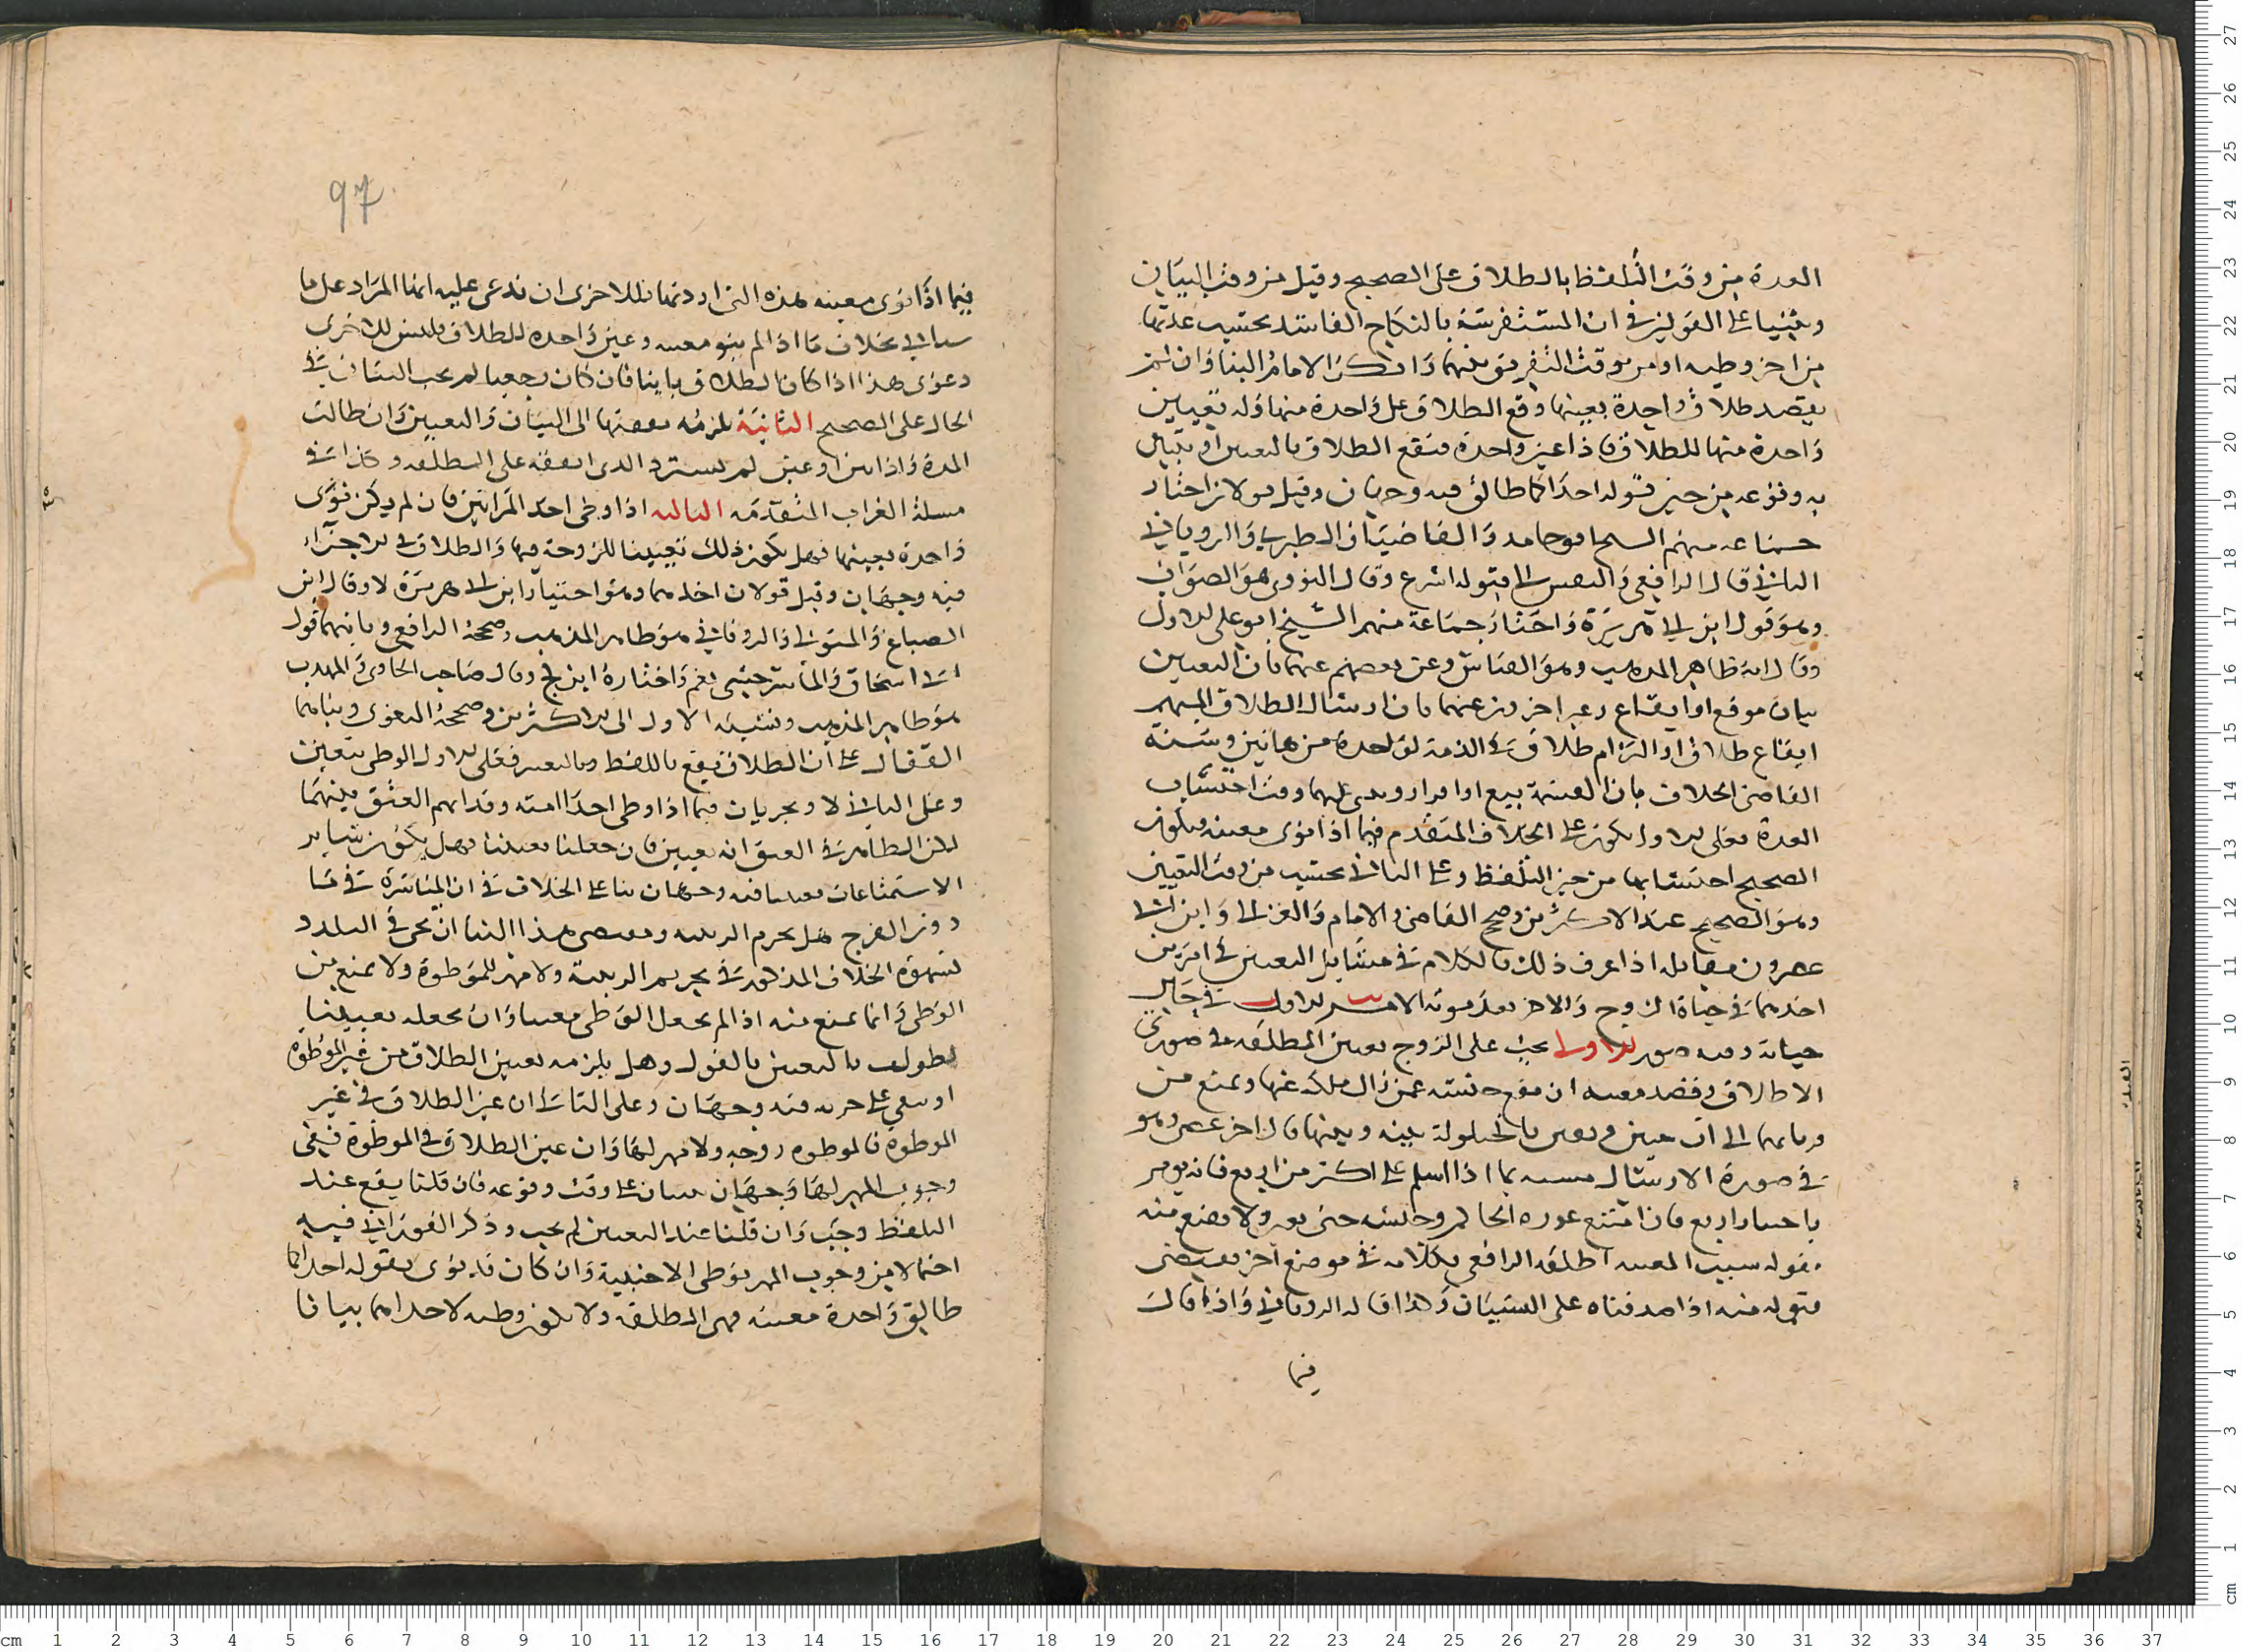 العدة من وقت التلفظ بالطلاق على الصحيح وقيل من وقت البيان
وبنيا على القولين في ان المستفرشة بالنكاح الفاسد تحتسب عدتها
من اخر وطيه او من وقت التفريق بينهما وانكر الامام البنا وان لم
يقصد طلاق واحدة بعينها وقع الطلاق على واحدة منهما وله تعيين
واحدة منهما للطلاق فاذا عين واحدة فيقع الطلاق بالتعيين او يتبين
به وقوعه من حين قوله احداكما طالق فيه وجهان وقيل قولان اختار
جماعه منهم الشيخ ابو حامد والقاضيان الطبري والروياني
الثاني قال الرافعي قوله اشرع وقال النووي هو الصواب
وهو قول ابن ابي هريرة واختار جماعة منهم الشيخ ابو علي الاول
وقال انه ظاهر المذهب وهو القياس وعن بعضهم عنهما بان التعيين
بيان موقع او ايقاع وعبر اخرون عنهما بان ارسال الطلاق المبهم
ايقاع طلاق او التزام طلاق في الذمة لواحدة من هاتين وشبه
القاضي الخلاف بان القسمة بيع او افراز وقت احتساب
العدة فعلى الاول يكون على الخلاف المتقدم فيما اذا نوى معينه فيكون
الصحيح احتسابها من حين التلفظ وعلى الثاني يحتسب من وقت التعيين
وهو الصحيح عند الاكثرين وصحح القاضي والامام والغزالي وابن ابي
عصرون مقابله اذا عرف ذلك فالكلام في مسايل التعيين في امرين
احدهما في حياة الزوج والاخر بعد موته الامر الاول في حال
حياته وفيه صور الاولى يجب على الزوج تعيين المطلقه في صورتي
الاطلاق وقصد معينه ان ملكه عنها ويمنع من
قربانهما الى ان يبين او يعين بالحيلولة بينه وبينهما قال ابن ابي عصرون وهو
في صورة الارسال بما اذا اسلم على اكثر من اربع فانه يومر
باختيار اربع فان امتنع عزره الحاكم وحبسه حتى يعين ولا يقنع منه
بقوله نسيت المعينه اطلقه الرافعي وكلامه في موضع اخر يقتضي
قبوله منه اذا صدقتاه على النسيان وكذا قاله الروياني واذا قال
فيما
97
فيما اذا نوى معينه هذه التي اردتها فللاخرى ان تدعي عليه انها المراد على ما
سياتي بخلاف ما اذا لم ينو معينه وعين واحده للطلاق فليس للاخرى
دعوى هذا اذا كان الطلاق باينا فان كان رجعيا لم يجب البيان في
الحال على الصحيح الثانية يلزمه نفقتها الى البيان والتعيين وان طالت
المدة واذا بين او عين لم يسترد الذي انفقه على المطلقه وكذا في
مسلة الغراب المتقدمة الثالثه اذا وطي احدى المراتين فان لم يكن نوى
واحدة بعينها فهل يكون ذلك تعيينا للزوجة فيها والطلاق في الاخرى
فيه وجهان وقيل قولان احدهما وهو اختيار ابن ابي هريرة لا وقال ابن
الصباغ والمتولي والروياني هو ظاهر المذهب وصححه الرافعي وثانيهما قول
ابي اسحاق والماسرجسي نعم واختاره ابن كج وقال صاحب الحاوي والمهذب
هو ظاهر المذهب ونسبه الاول الى الاكثرين وصححه البغوي وبناهما
القفال على ان الطلاق يقع باللفظ وبالتعيين فعلى الاول الوطي تعيين
وعلى الثاني لا ويجريان فيما اذا وطي احدى امته وقد ابهم العتق بينهما
لكن الظاهر في العتق انه تعيين فان جعلنا تعيينا فهل يكون ساير
الاستمتاعات تعيينا فيه وجهان بنا على الخلاف في ان المباشرة في ما
دون الفرج هل يحرم الربيبه ومقتضى هذا البنا ان يجري في التلذذ
بشهوة الخلاف المذكور في تحريم الربيبة ولا مهر للموطوة ولا يمنع من
الوطي وانما يمنع منه اذا لم يجعل الوطي تعيينا وان يجعله تعيينا
طولب بالتعيين بالقول وهل يلزمه تعيين الطلاق من غير الموطوه
او يبقى على حريته فيه وجهان وعلى الثاني ان عين الطلاق في غير
الموطوه فالموطوه زوجه ولا مهر لها وان عين الطلاق في الموطوة ففي
وجوب المهر لها وجهان مبنيان على وقت وقوعه فان قلنا يقع عند
التلفظ وجب وان قلنا عند التعيين لم يجب وذكر الفوراني فيه
احتمالا من وجوب المهر بوطي الاجنبية وان كان قد نوى بقوله احداكما
طالق واحدة معينه فهي المطلقه ولا يكون وطيه لاحداهما بيانا